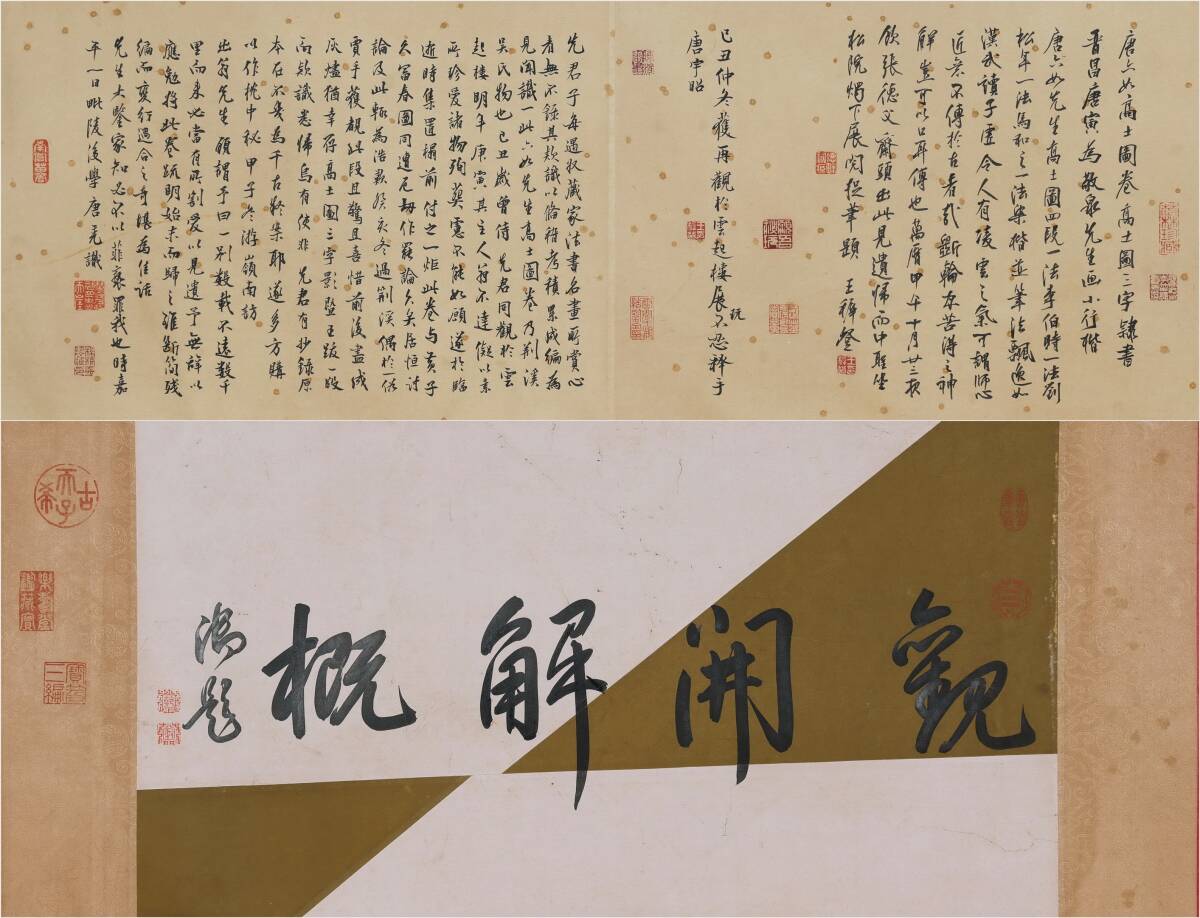 唐六如高士圖卷高士圖三字隸書
晋昌唐寅為敬泉先生画小行楷
唐六如先生高士圖四段一法李伯時一法劉
松年一法馬和之一法梁楷並筆法飄逸如
漢武讀子虛令人有凌雲之氣可謂師心
近意不傳於古者哉斲輪左苦得之神
解豈可以口耳傳也萬曆甲午十月廿三夜
飲張德文齋頭出此見遺歸而中聖坐
松院燭下展閱從筆題 王穉登
己丑仲冬獲再觀於雲起樓展玩不忍釋手
唐宇昭
先君子每遇收藏家法書名畫所賞心
者無不錄其欵識以備稽考積累成編為
見聞識一此六如先生高士圖卷乃荆溪
吳氏物也己丑歲曾侍 先君同觀於雲
起樓明年庚寅其主人翁不達儗以素
所珍愛諸物殉葬慮不能如願遂於臨
逝時集置榻前付之一炬此卷與黃子
久富春圖同遭厄劫作罷論久矣居恒討
論及此輒為浩歎癸亥冬過荆溪偶於一俗
賈手獲覩此段且驚且喜惜前後盡成
灰燼猶幸存高士圖三字影暨王跋一段
而欵識悉歸烏有使非 先君有抄錄原
本在不幾為千古疑案耶遂多方購
以作枕中秘甲子冬游嶺南訪
出翁先生顧謂予曰一別數載不遠數千
里而來必當有所割愛以見遺予無辭以
應勉将此卷疏明始末而歸之雖斷簡殘
編而變行遇合之奇堪為佳話
先生大鑒家知必不以菲褻罪我也時嘉
平一日毗陵後學唐炗識
觀開解概
御題
古希天子
樂壽堂鑑藏寶
寶笈三編